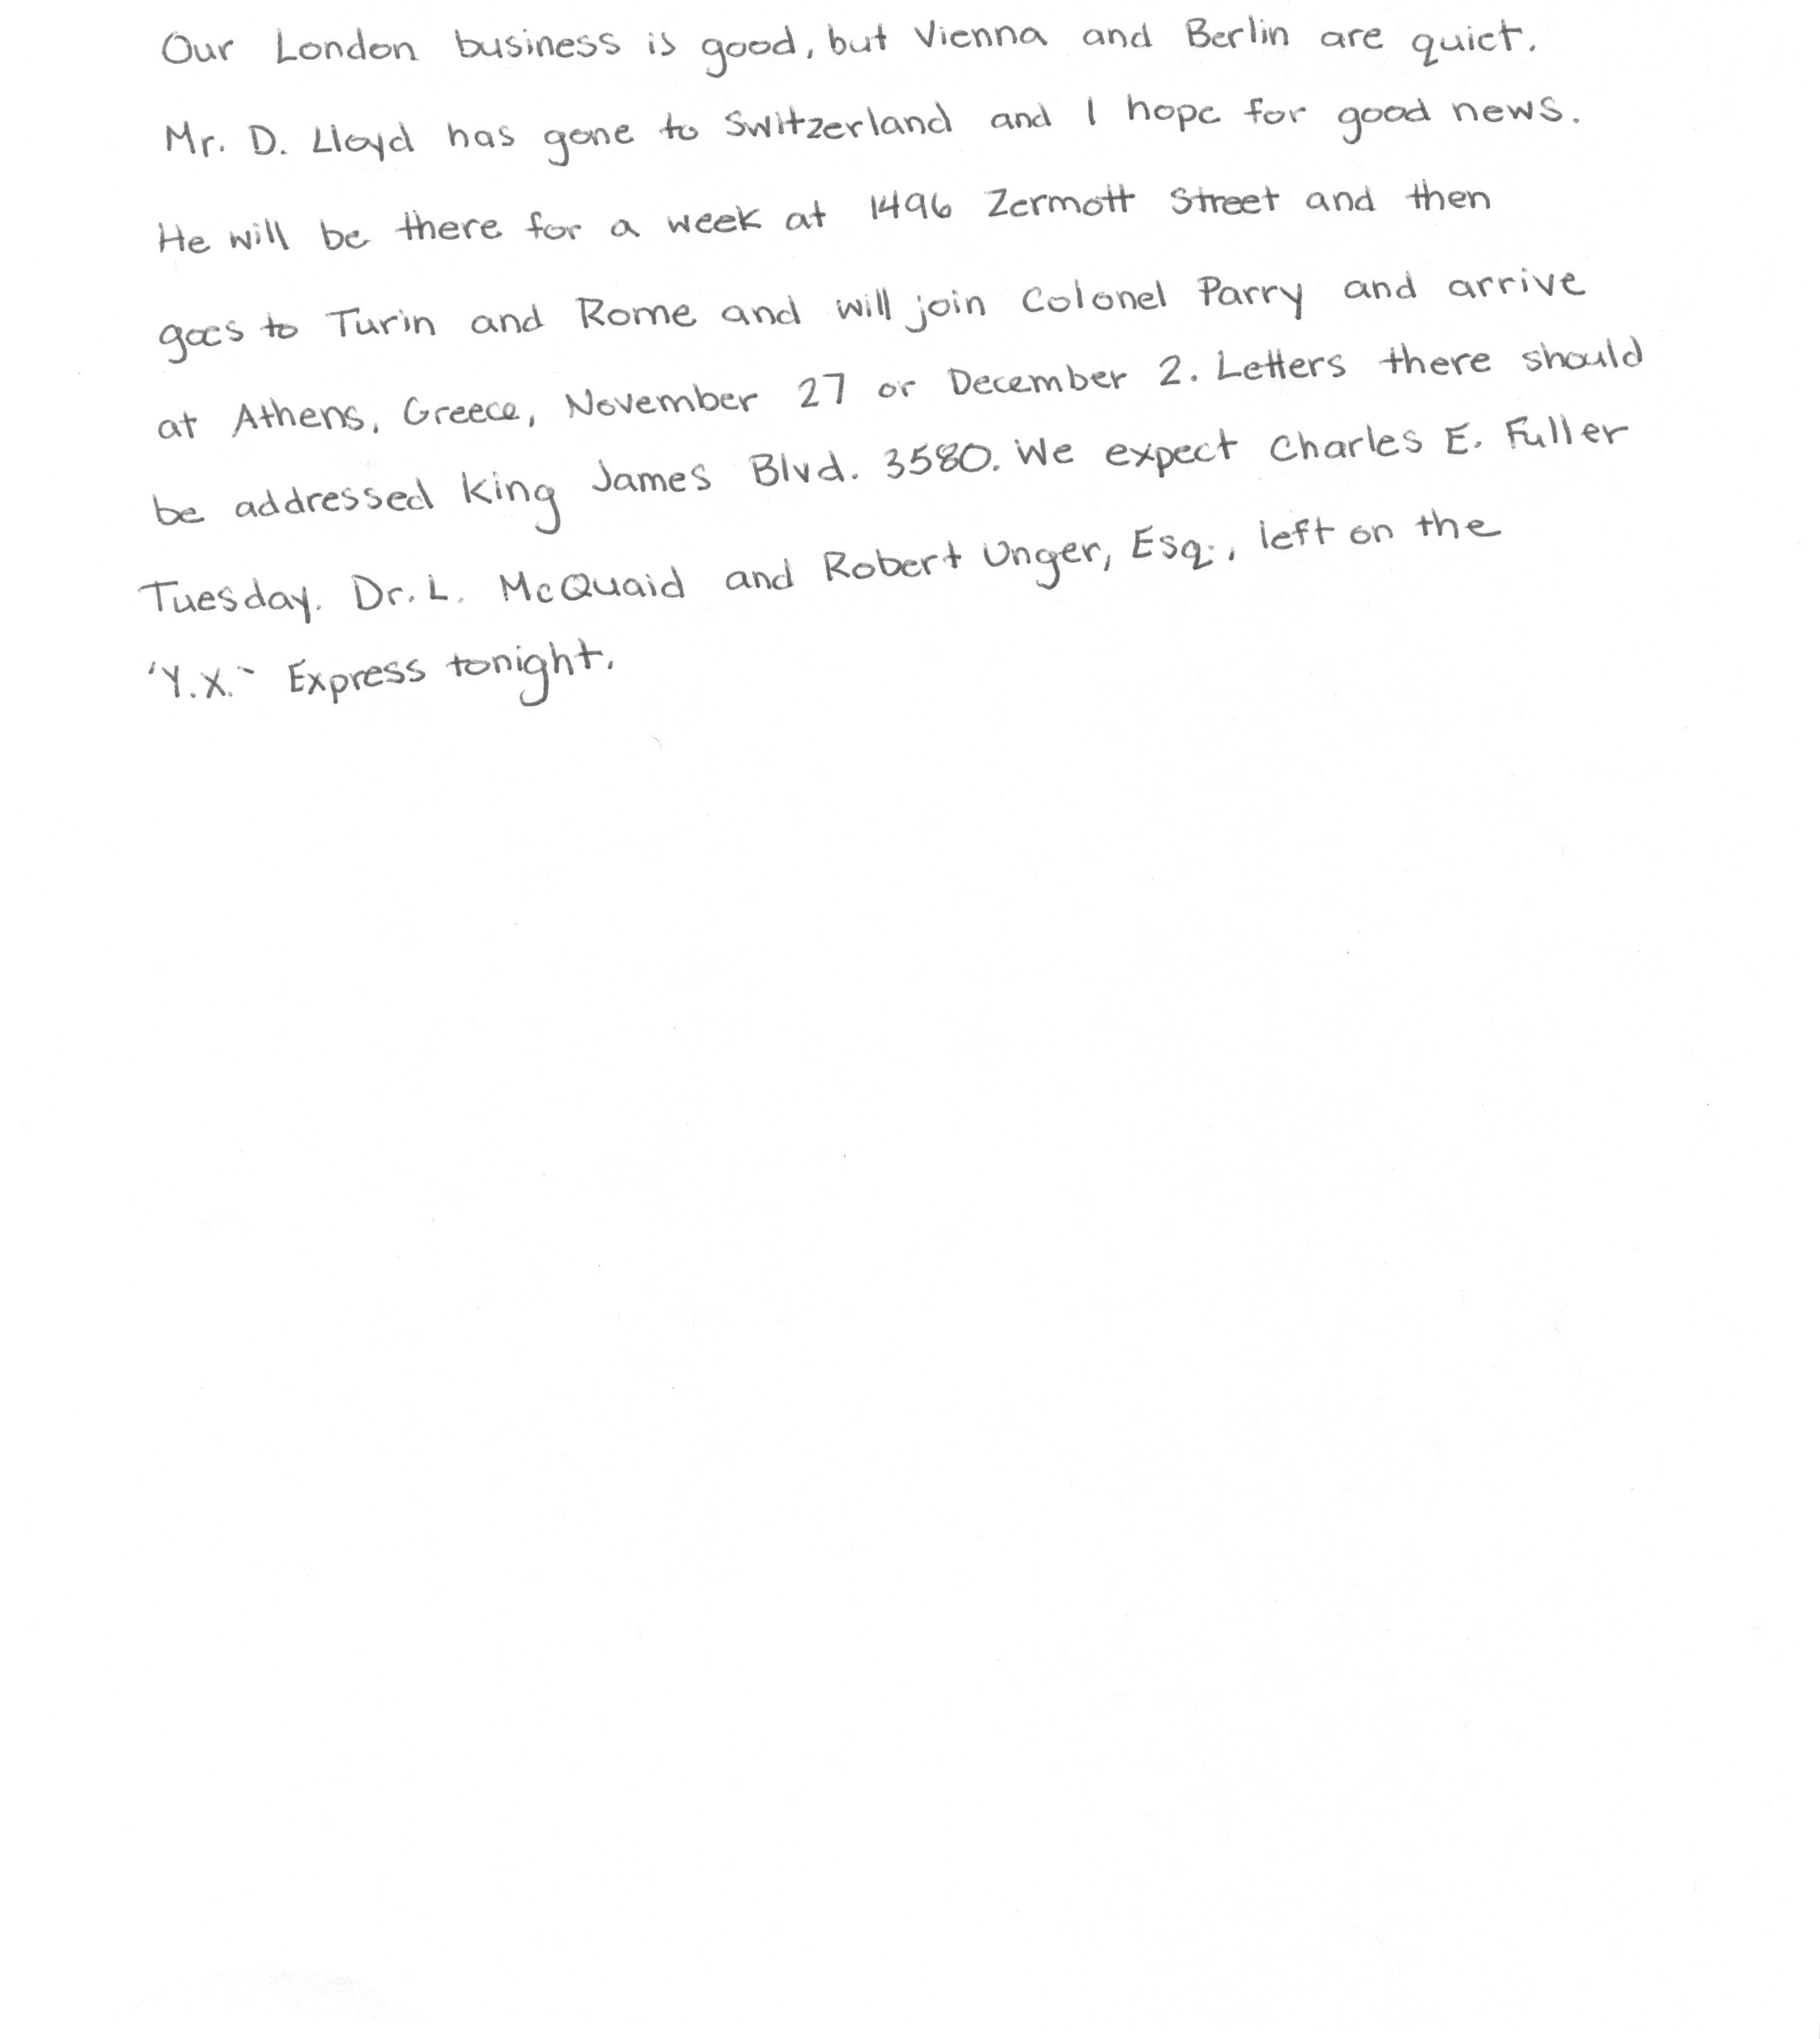 Our London business is good, but Vienna and Berlin are quiet.
Mr. D. Lloyd has gone to Switzerland and I hope for good news.
He will be there for a week at 1496 Zermott Street and then
goes to Turin and Rome and will join Colonel Parry and arrive
at Athens, Greece, November 27 or December 2. Letters there should
be addressed King James Blvd. 3580. We expect Charles E. Fuller
Tuesday. Dr. L. McQuaid and Robert Unger, Esq., left on the
'Y.X.` Express tonight.